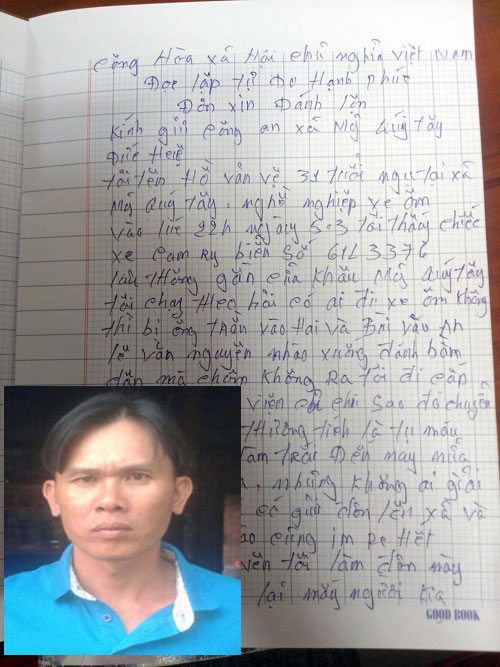 Cộng Hòa xá Hội chủ nghĩa việt NAM
Đọc lặp tự Do Hạnh phúc
Đơn xin Đánh lộn
kính gửi công an xã Mỹ Quý Tây
Đức Huệ
tôi tên Hồ văn vệ 31 tuổi ngụ tại xã
Mỹ Quý tây. nghề nghiệp xe ôm
vào lúc 22h ngày 5-3 tôi thấy chiếc
xe cam ry biển số 61L 3376
lưu thông gần cửa khẩu Mỹ Quý tây
tôi chạy theo hỏi có ai đi xe ôm không
thì bị ông trần vào Hai và Bùi vảo An
lê vản nguyên nhào xuống đánh bầm
dần mà chồm không Ra tôi đi cấp
viện chi sao đó chuyển
thương tích là tụ máu
tam trái Đến nay nữa
, nhưng không ai giải
có gửi đơn lên xã và
cũng im Re Hết
tôi làm đơn này
lại mấy người kia
GOOD BOOK